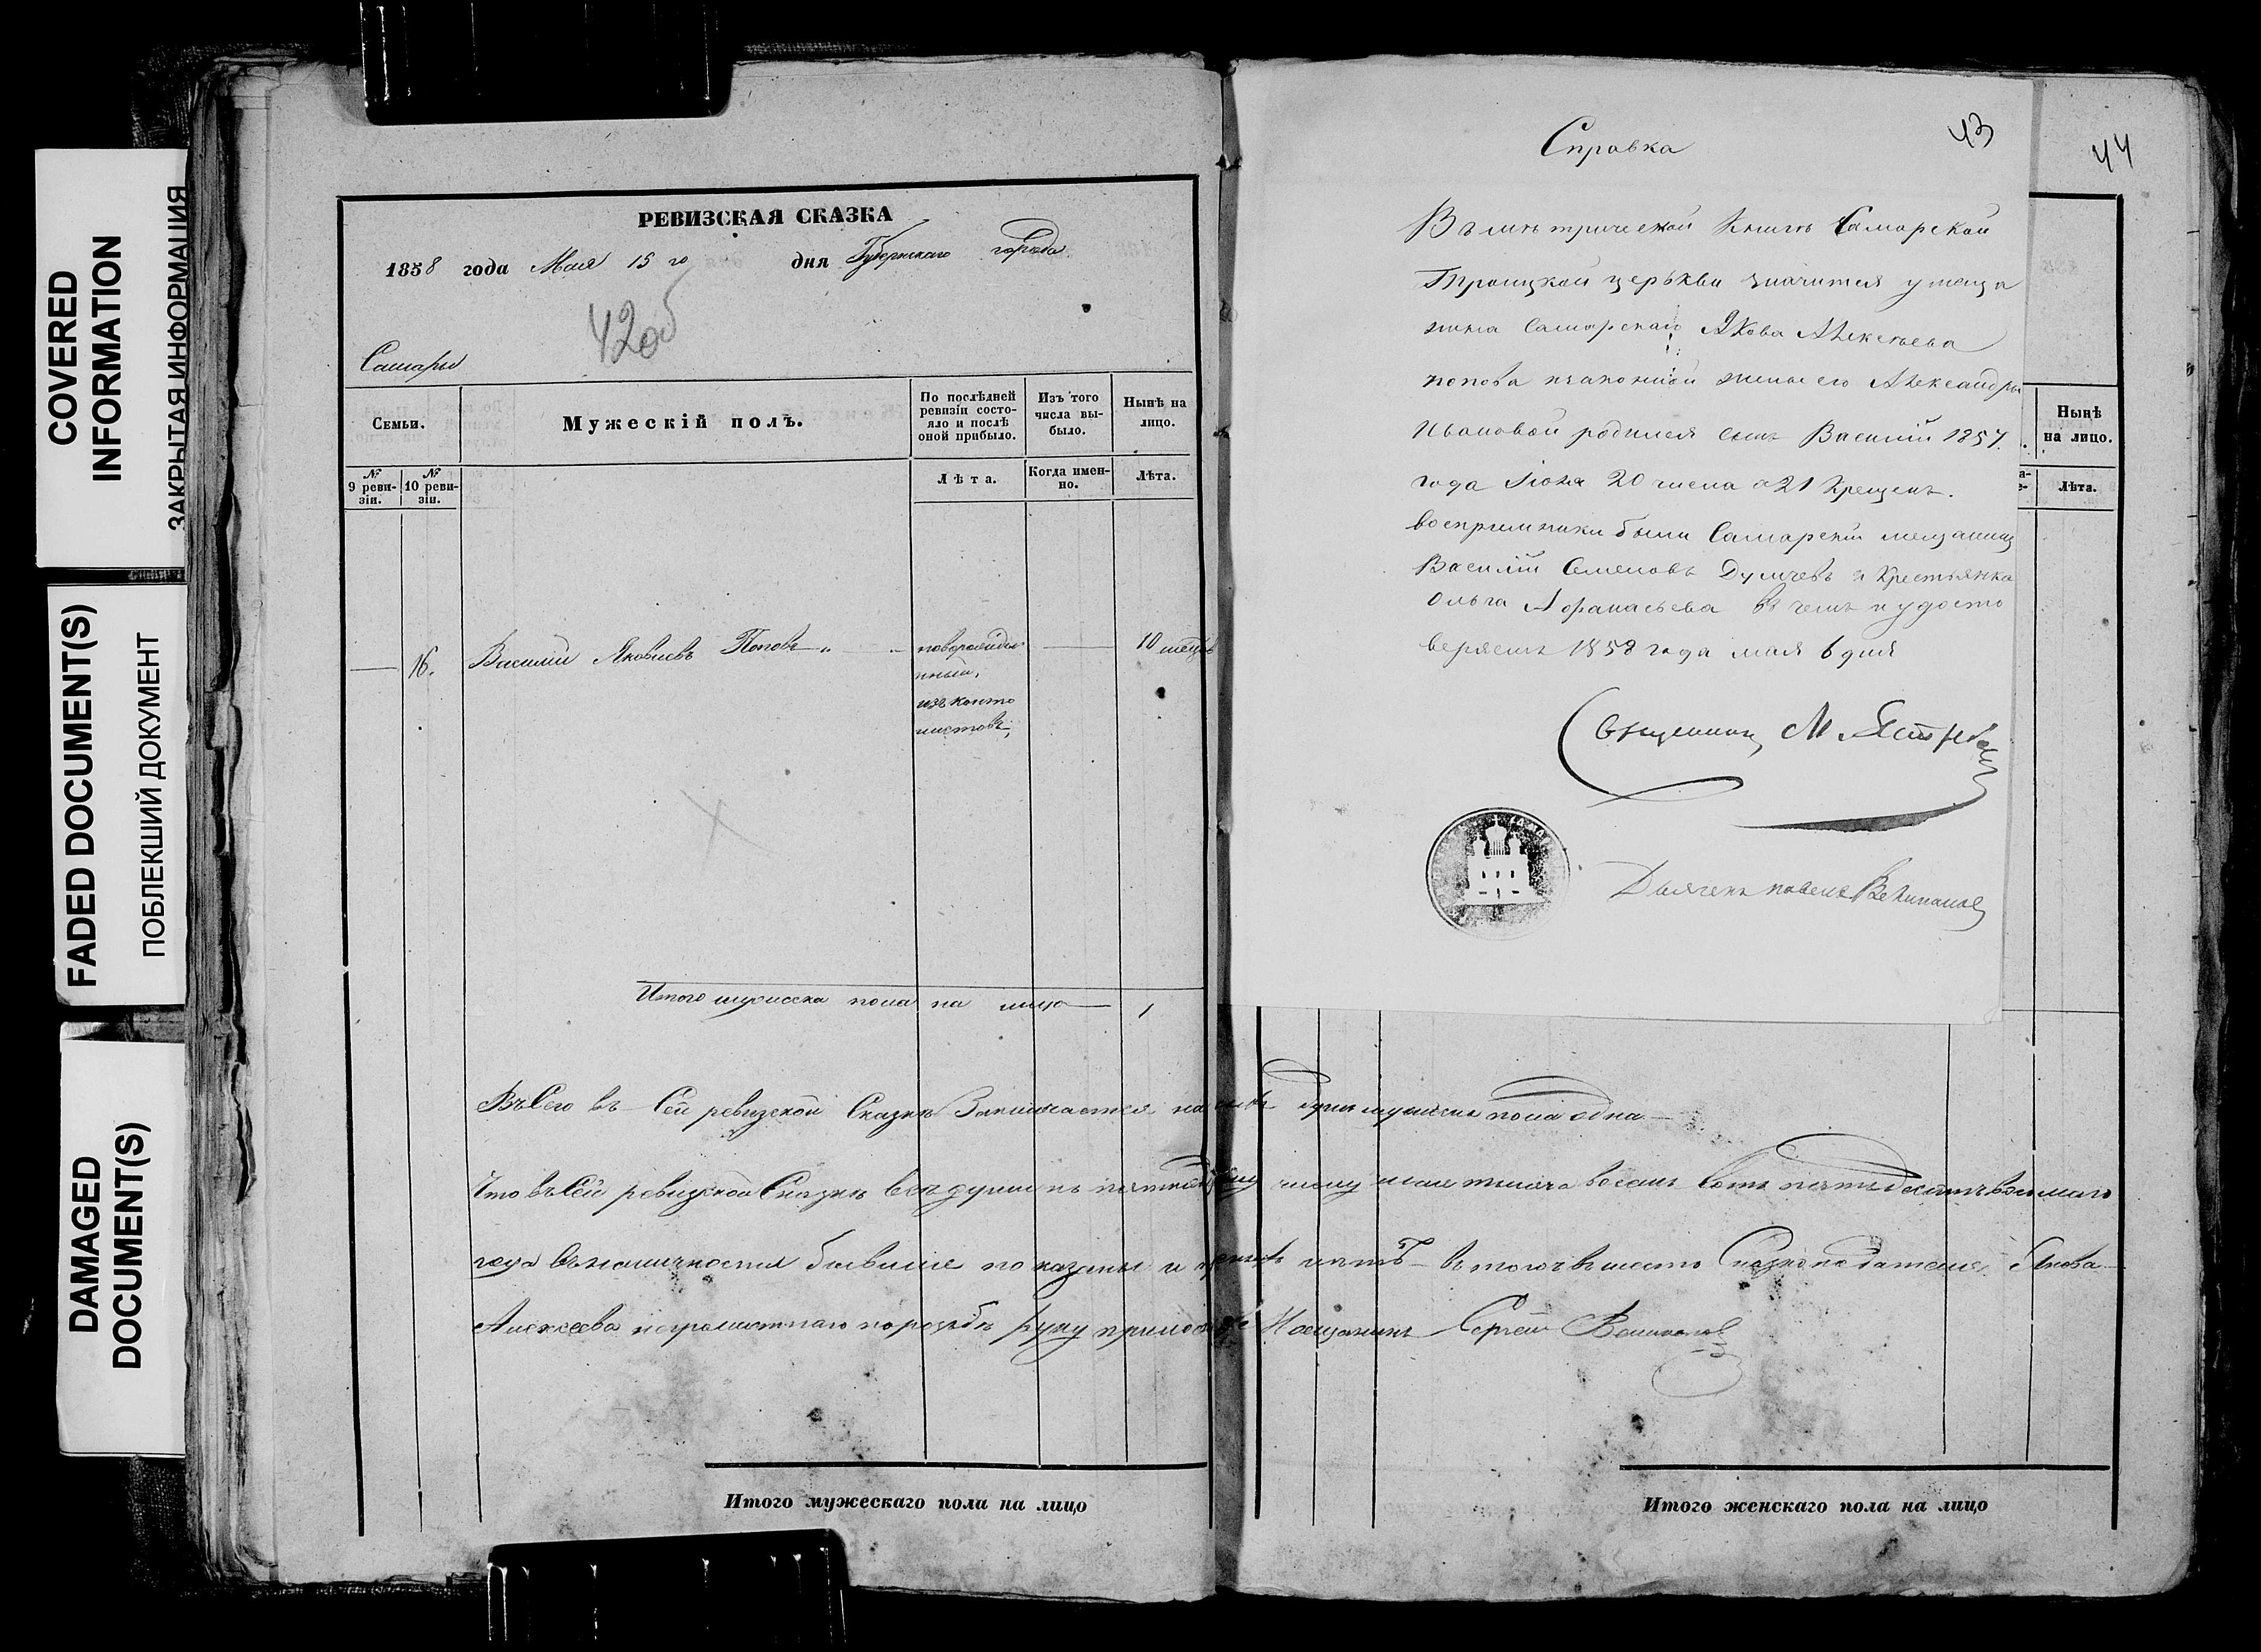 COVERED
INFORMATION
ЗАКРЫТАЯ ИНФОРМАЦИЯ
FADED DOCUMENT(S)
ПОБЛЕКШИЙ ДОКУМЕНТ
DAMAGED
DOCUMENT(S)
РЕВИЗСКАЯ СКАЗКА
1858 года Мая 15 го дня Губернскаго города
42об
Самары
Семьи.
Мужескій полъ.
По послѣдней
ревизіи состо-
яло и послѣ
оной прибыло.
Изъ того
числа вы-
было.
Нынѣ на
лицо.
№
9 реви-
зіи.
№
10 реви-
зіи.
Лѣта.
Когда имен-
но.
Лѣта.
16. Василій Яковлевъ Поповъ новорожден 10 мецов
нный,
изъ канто
нистовъ,
Итого мужеска пола на лицо 1
Въ Сего въ Сей ревизской Сказкѣ Заключается на душъ мужеска пола одна
Что въ Сей ревизской Сказкѣ всѣ души къ числу мая тысяча восемь сотъ пятьдесятъ восьмаго
года въ наличности бывшие показаны и нѣтъ въ томъ вместо Сказкоподателя Якова
Алексеева неграмотнаго по прозбѣ руку приложилъ Мещанинъ Сергей
Итого мужескаго пола на лицо
43
44
Справка
Въ метрической книге Самарской
Троицкой церькви значится у меща
нина Самарскаго Якова Алексѣева
попова и законной жены его Александры
Ивановой родился сынъ Василій 1857.
года Іюня 20 числа а 21 крещенъ.
восприемники были Самарскій мещанинъ
Василій Семеновъ и крестьянка
Ольга Афанасьева въ чемъ и удосто
веряемъ 1858 года мая 6 дня
Священникъ М.
павелъ
Нынѣ
на лицо.
Лѣта.
Итого женскаго пола на лицо